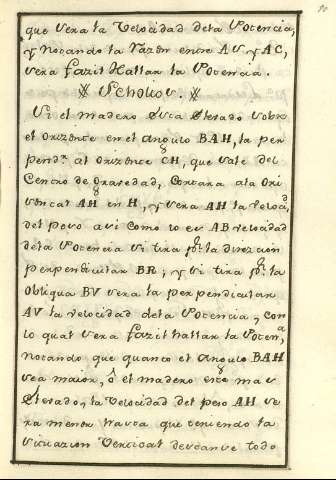 que sera la Velocidad dela Potencia,
y notando la razon entre AV y AC,
sera facil hallar la Potencia.
Scholio v.
Si el madero está Elevado sobre
el orizonte en el angulo BAH, la per
pendr al orizonte CH, que sale del
Centro de gravedad, Cortara ala Ori
zontal AH en H, y sera AH la velocid
del peso asi como lo es AB velocidad
dela Potencia si tira pr la direzion
perpendicular BR; y si tira pr la
obliqua BV sera la perpendicular
AV la velocidad dela Potencia, con
lo qual sera facil hallar la Potena,
notando que quanto el angulo BAH
sea maior, ô el madero este mas
Elevado, la Velocidad del peso AH se
ra menor hasta que teniendo la
situazion Vertical descanse todo